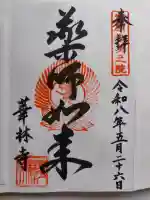 奉拝
令和八年五月二十六日
薬師如来
華林寺